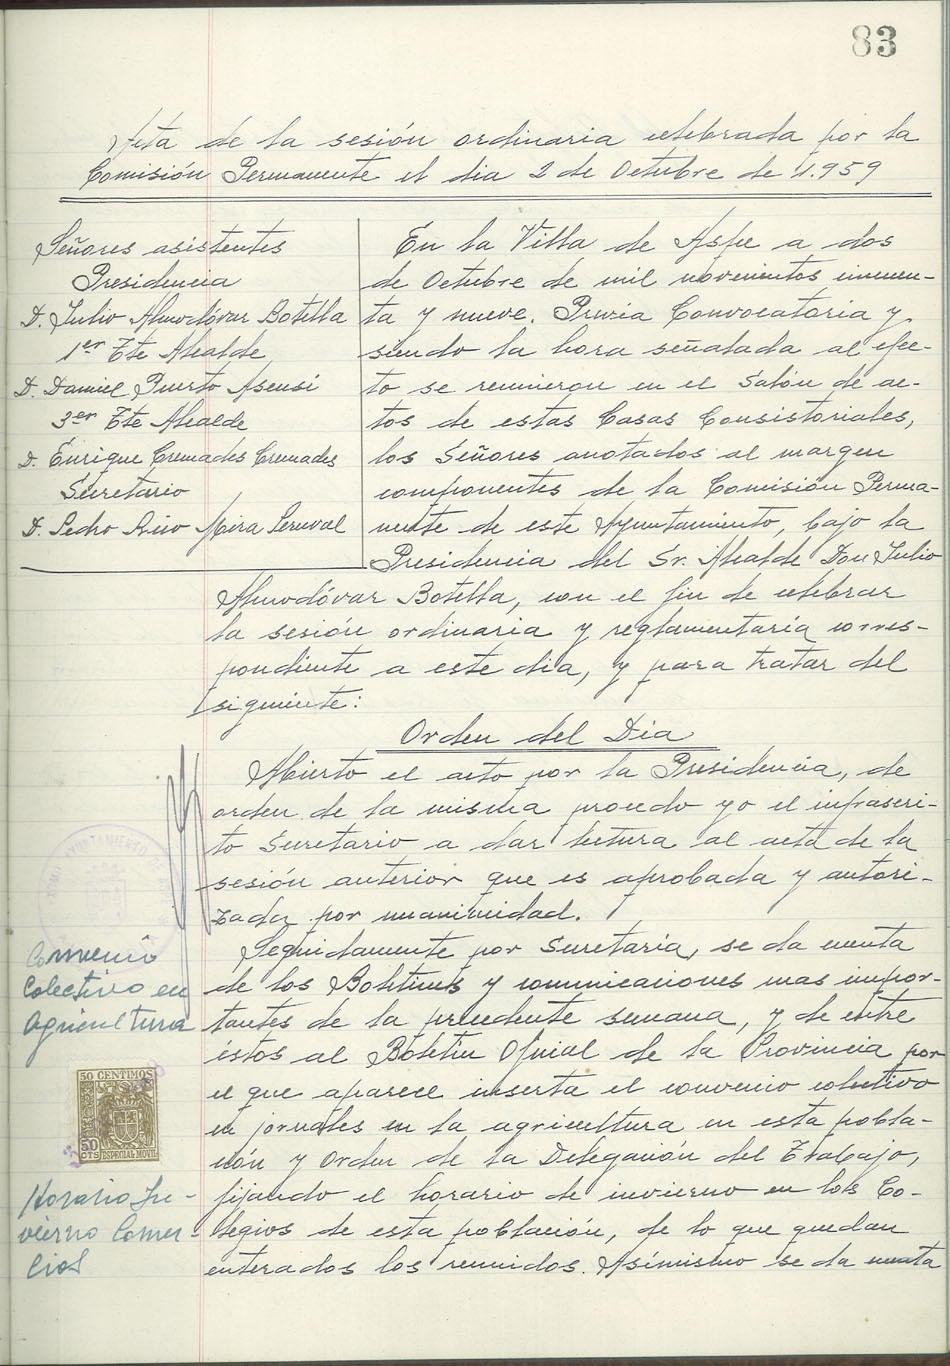 83
Acta de la sesión ordinaria celebrada por la
Comisión Permanente el dia 2 de Octubre de 1.959
Señores asistentes
Presidencia
D. Julio Almodóvar Botella
1er Tte Alcalde
D. Daniel Puerto Asensi
3er Tte Alcalde
D. Enrique Cremades Cremades
Secretario
D. Pedro Mira
En la Villa de Aspe a dos
de Octubre de mil novecientos cincuen-
ta y nueve. Previa Convocatoria y
siendo la hora señalada al efec-
to se reunieron en el Salón de ac-
tos de estas Casas Consistoriales,
los Señores anotados al margen
componentes de la Comisión Perma-
nente de este Ayuntamiento, bajo la
Presidencia del Sr. Alcalde Don Julio
Almodóvar Botella, con el fin de celebrar
la sesión ordinaria y reglamentaria corres-
pondiente a este dia, y para tratar del
siguiente:
Orden del Dia
Abierto el acto por la Presidencia, de
orden de la misma procedo yo el infrascri-
to Secretario a dar lectura al acta de la
sesión anterior que es aprobada y autori-
zada por unanimidad.
Convenio
Colectivo en
Agricultura
Seguidamente por Secretaría, se da cuenta
de los Boletines y comunicaciones mas impor-
tantes de la precedente semana, y de entre
éstos al Boletin Oficial de la Provincia por
el que aparece inserta el convenio colectivo
en jornales en la agricultura en esta pobla-
ción y Orden de la Delegación del Trabajo,
fijando el horario de invierno en los Co-
legios de esta población, de lo que quedan
enterados los reunidos. Asimismo se da cuenta
50 CENTIMOS
50
CTS ESPECIAL MOVIL
Horario In-
vierno Comer-
cial
AYUNTAMIENTO DE